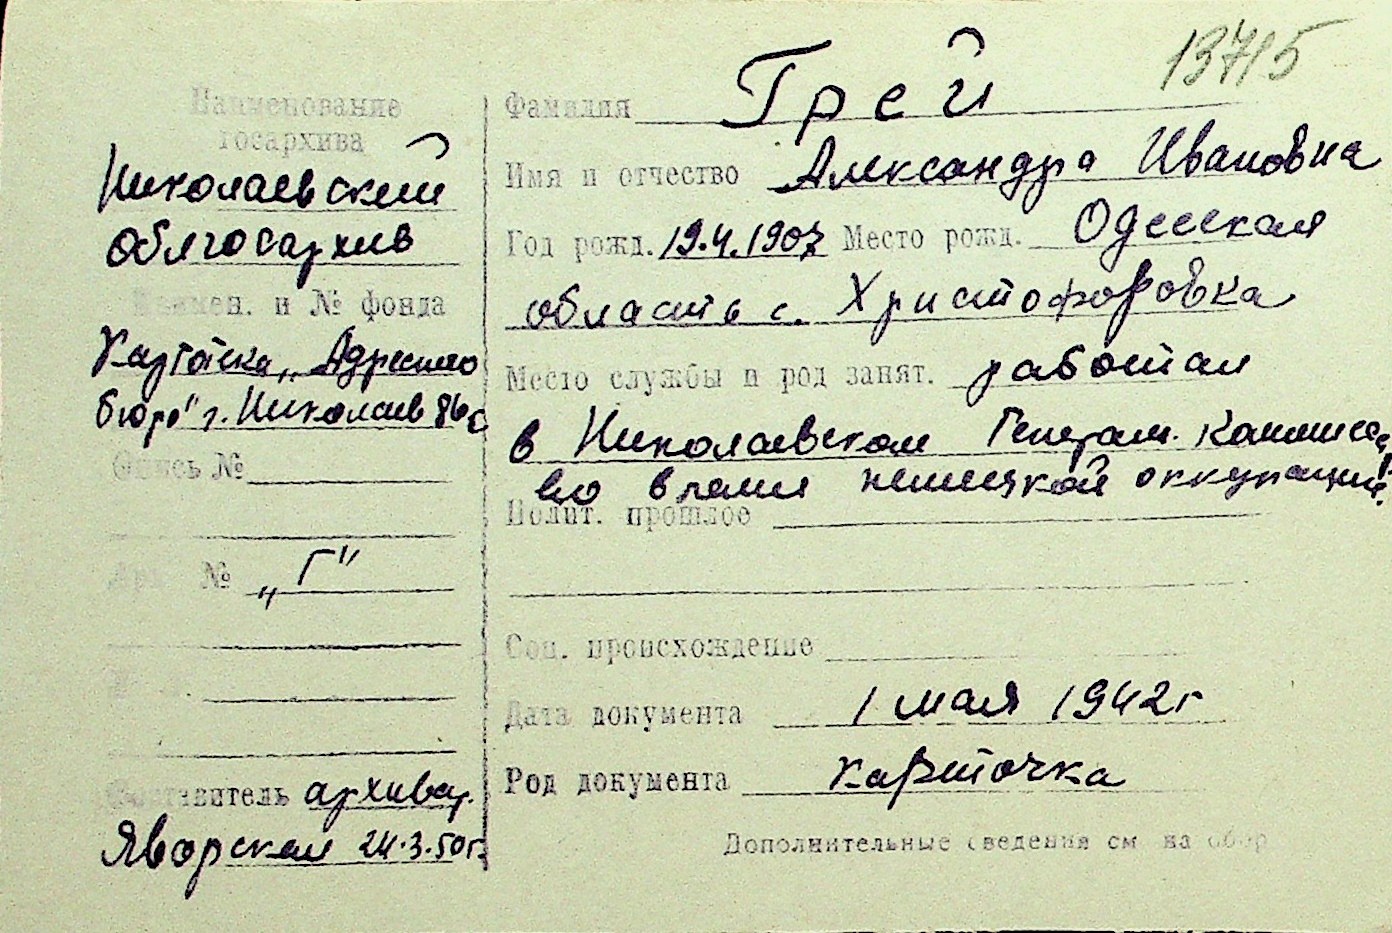 13715
Наименование
госархива
Николаевский
облгосархив
Наимен. и № фонда
Картотека „Адресного
бюро" г. Николаев
Опись №
Арх. № „Г"
Составитель архивар.
Яворская 24.3.50г.
Фамилия Грей
Имя и отчество Александра Ивановна
Год рожд. 19.4.1907 Место рожд. Одесская
область с. Христофоровка
Место службы и род занят. работал
в Николаевском Генерал. комиссар.
во время немецкой оккупации.
Полит. прошлое
Соц. происхождение
Дата документа 1 мая 1942г
Род документа карточка
Дополнительные сведения см на обор